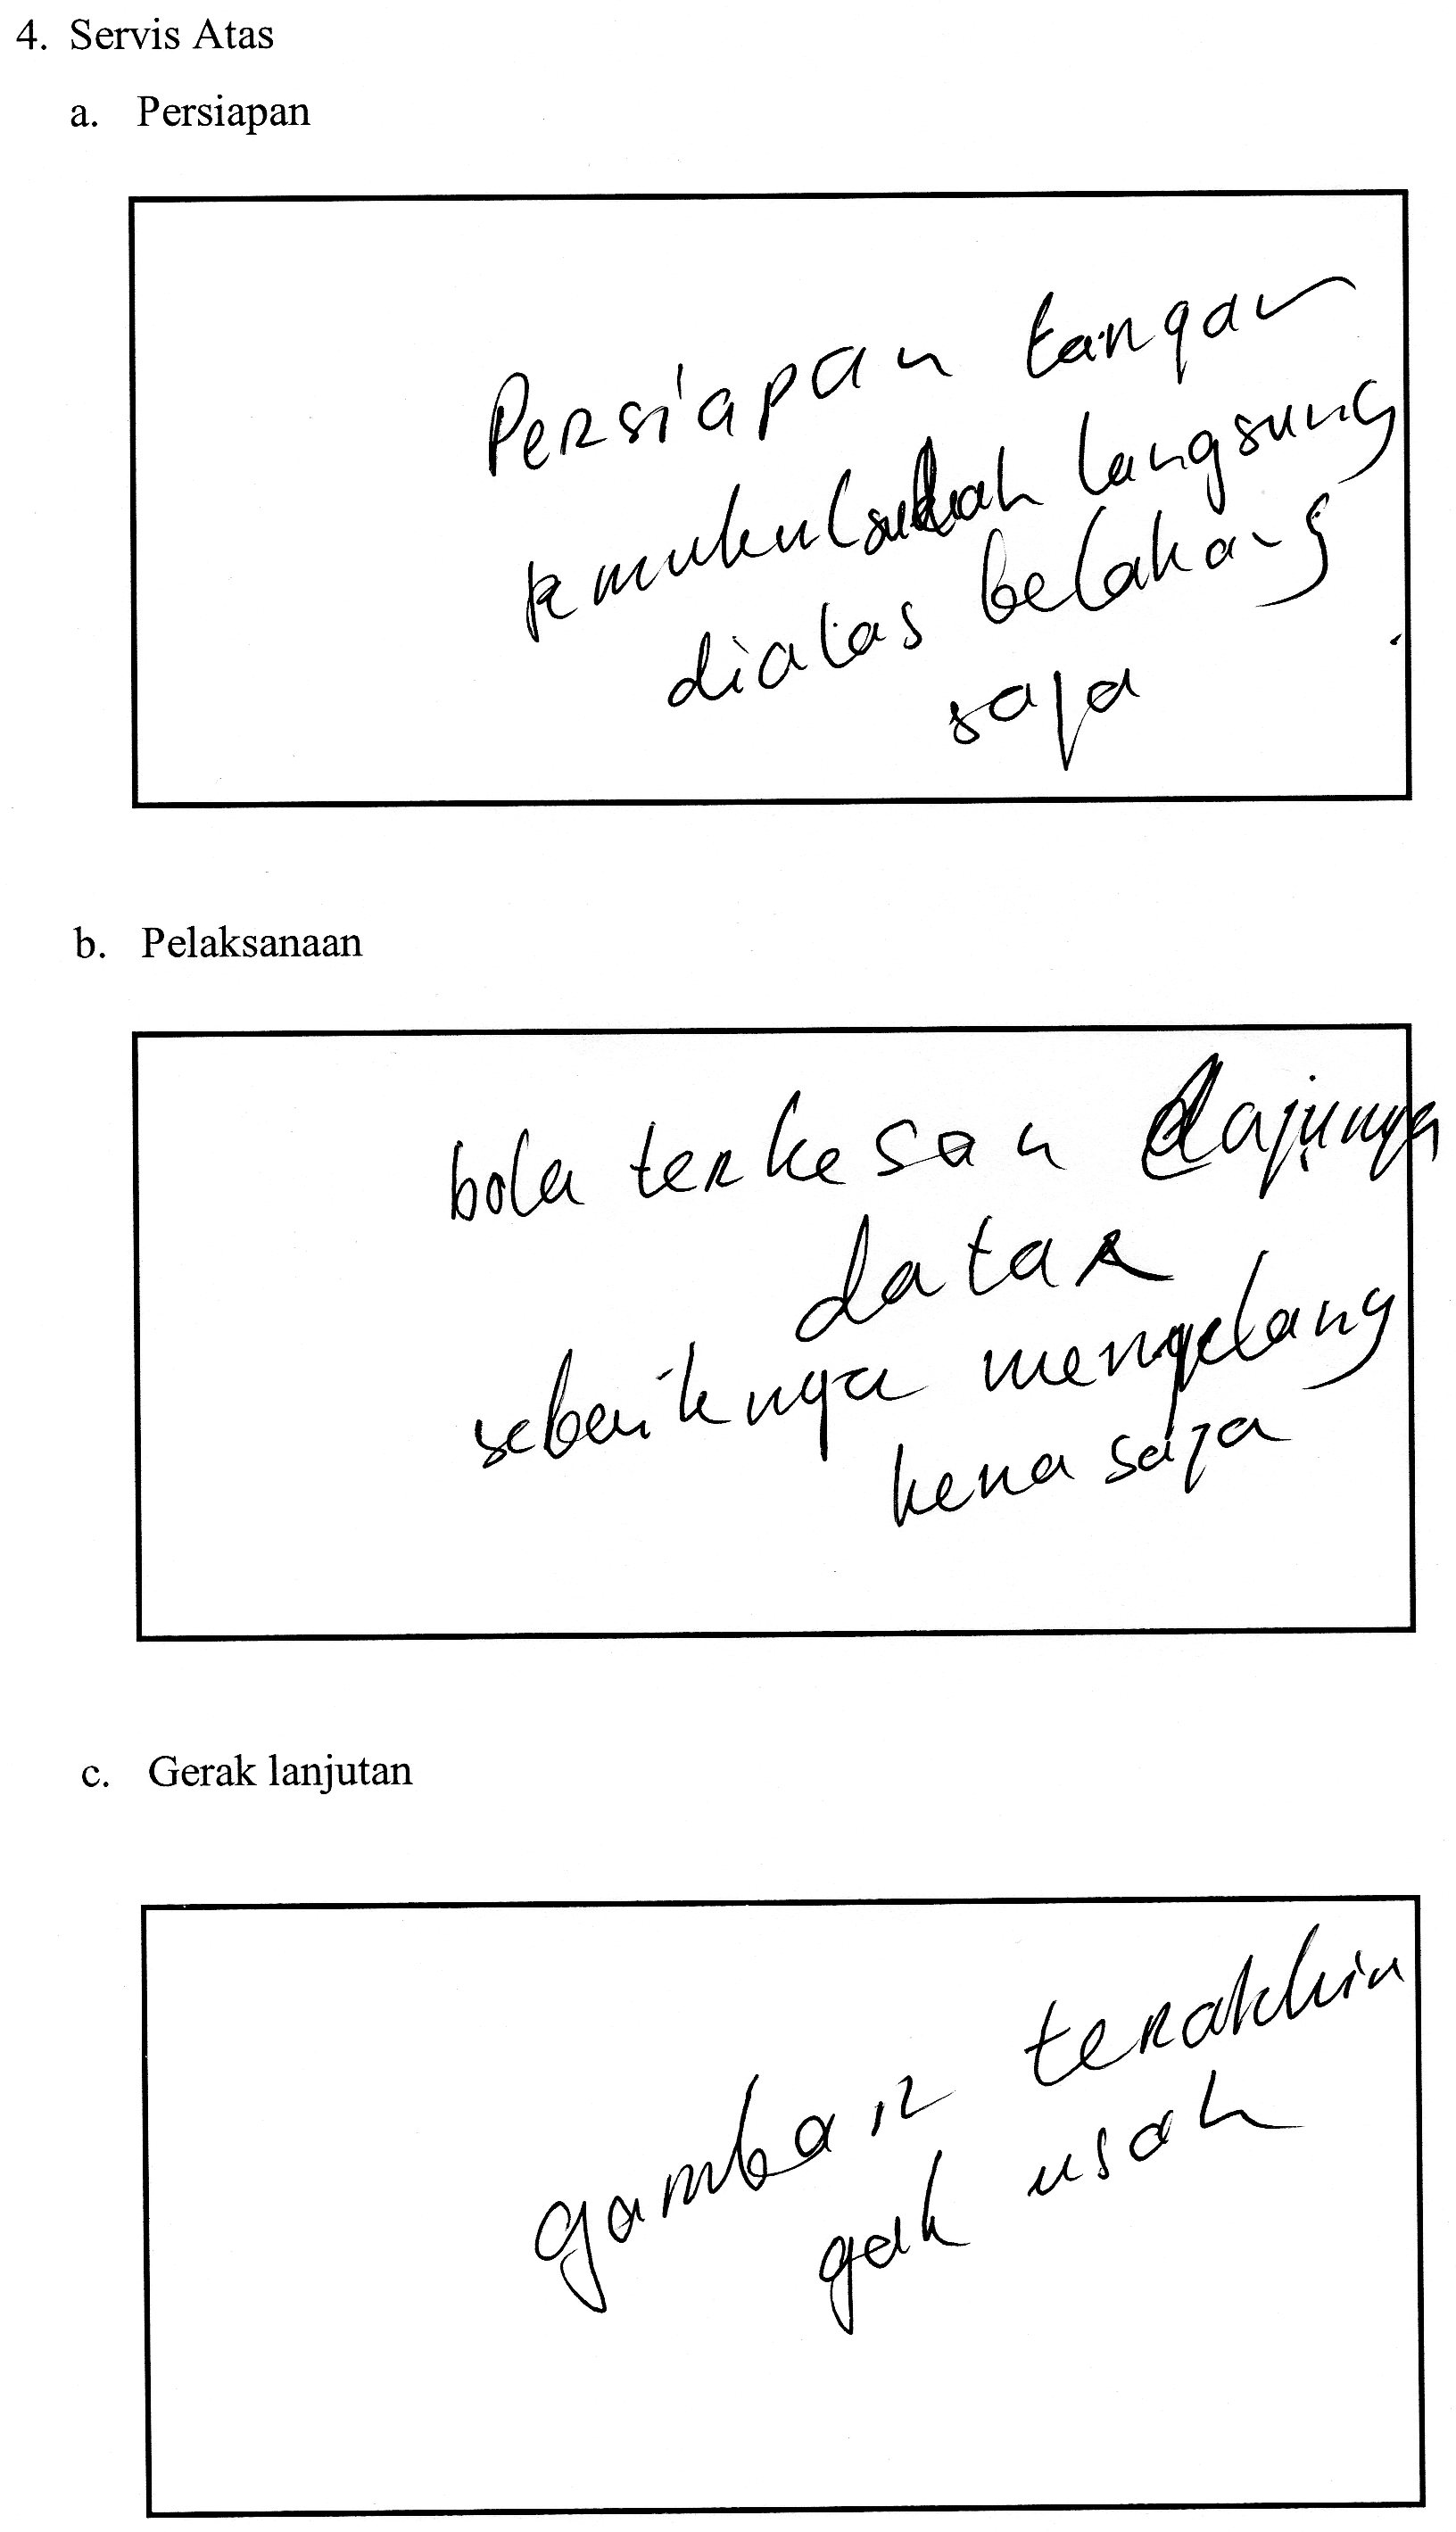 4. Servis Atas
a. Persiapan
Persiapan tangan
pemukul sudah langsung
diatas belakang
saja
b. Pelaksanaan
bola terkesan lajunya
datar
sebaiknya mengelang
kena saja
c. Gerak lanjutan
gambar terakhir
gak usah